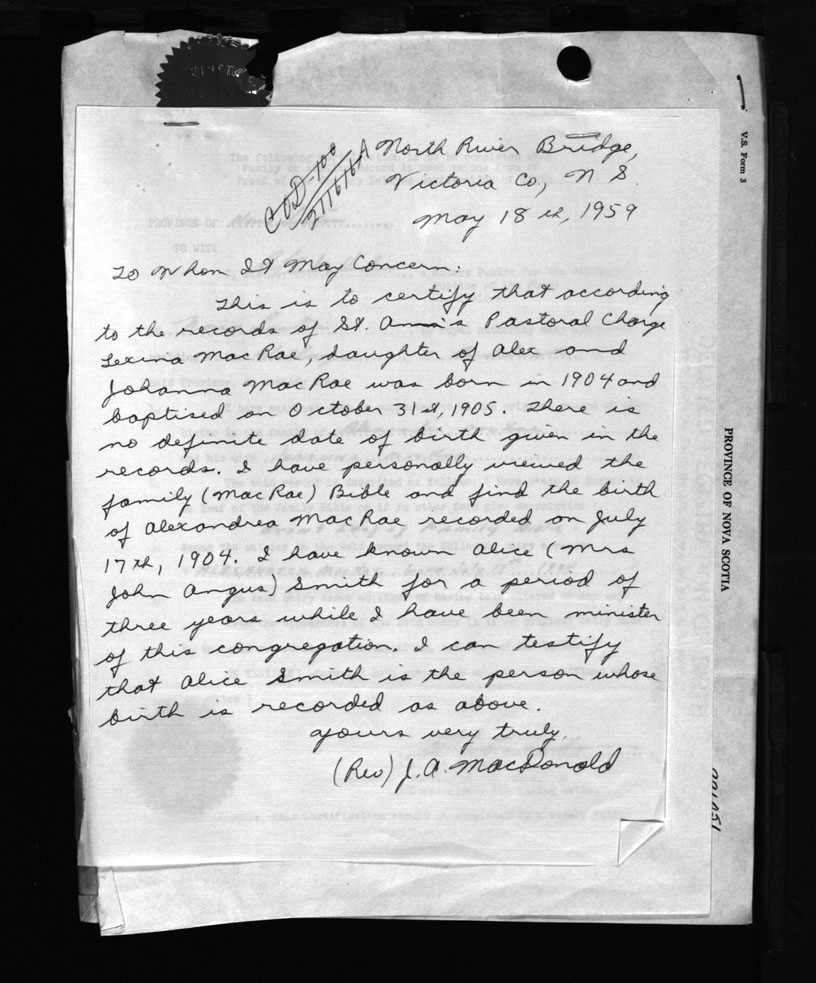 North River Bridge,
Victoria Co, N. S.
May 18th, 1959
COD-100
211616A
To Whom It May Concern:
This is to certify that according
to the records of St. Ann's Pastoral Charge
Lexina MacRae, daughter of Alex and
Johanna MacRae was born in 1904 and
baptised on October 31st, 1905. There is
no definite date of birth given in the
records. I have personally viewed the
family (MacRae) Bible and find the birth
of Alexandrea MacRae recorded on July
17th, 1904. I have known Alice (Mrs
John Angus) Smith for a period of
three years while I have been minister
of this congregation. I can testify
that Alice Smith is the person whose
birth is recorded as above.
Yours very truly,
(Rev) J. A. MacDonald
V.S. Form 3
PROVINCE OF NOVA SCOTIA